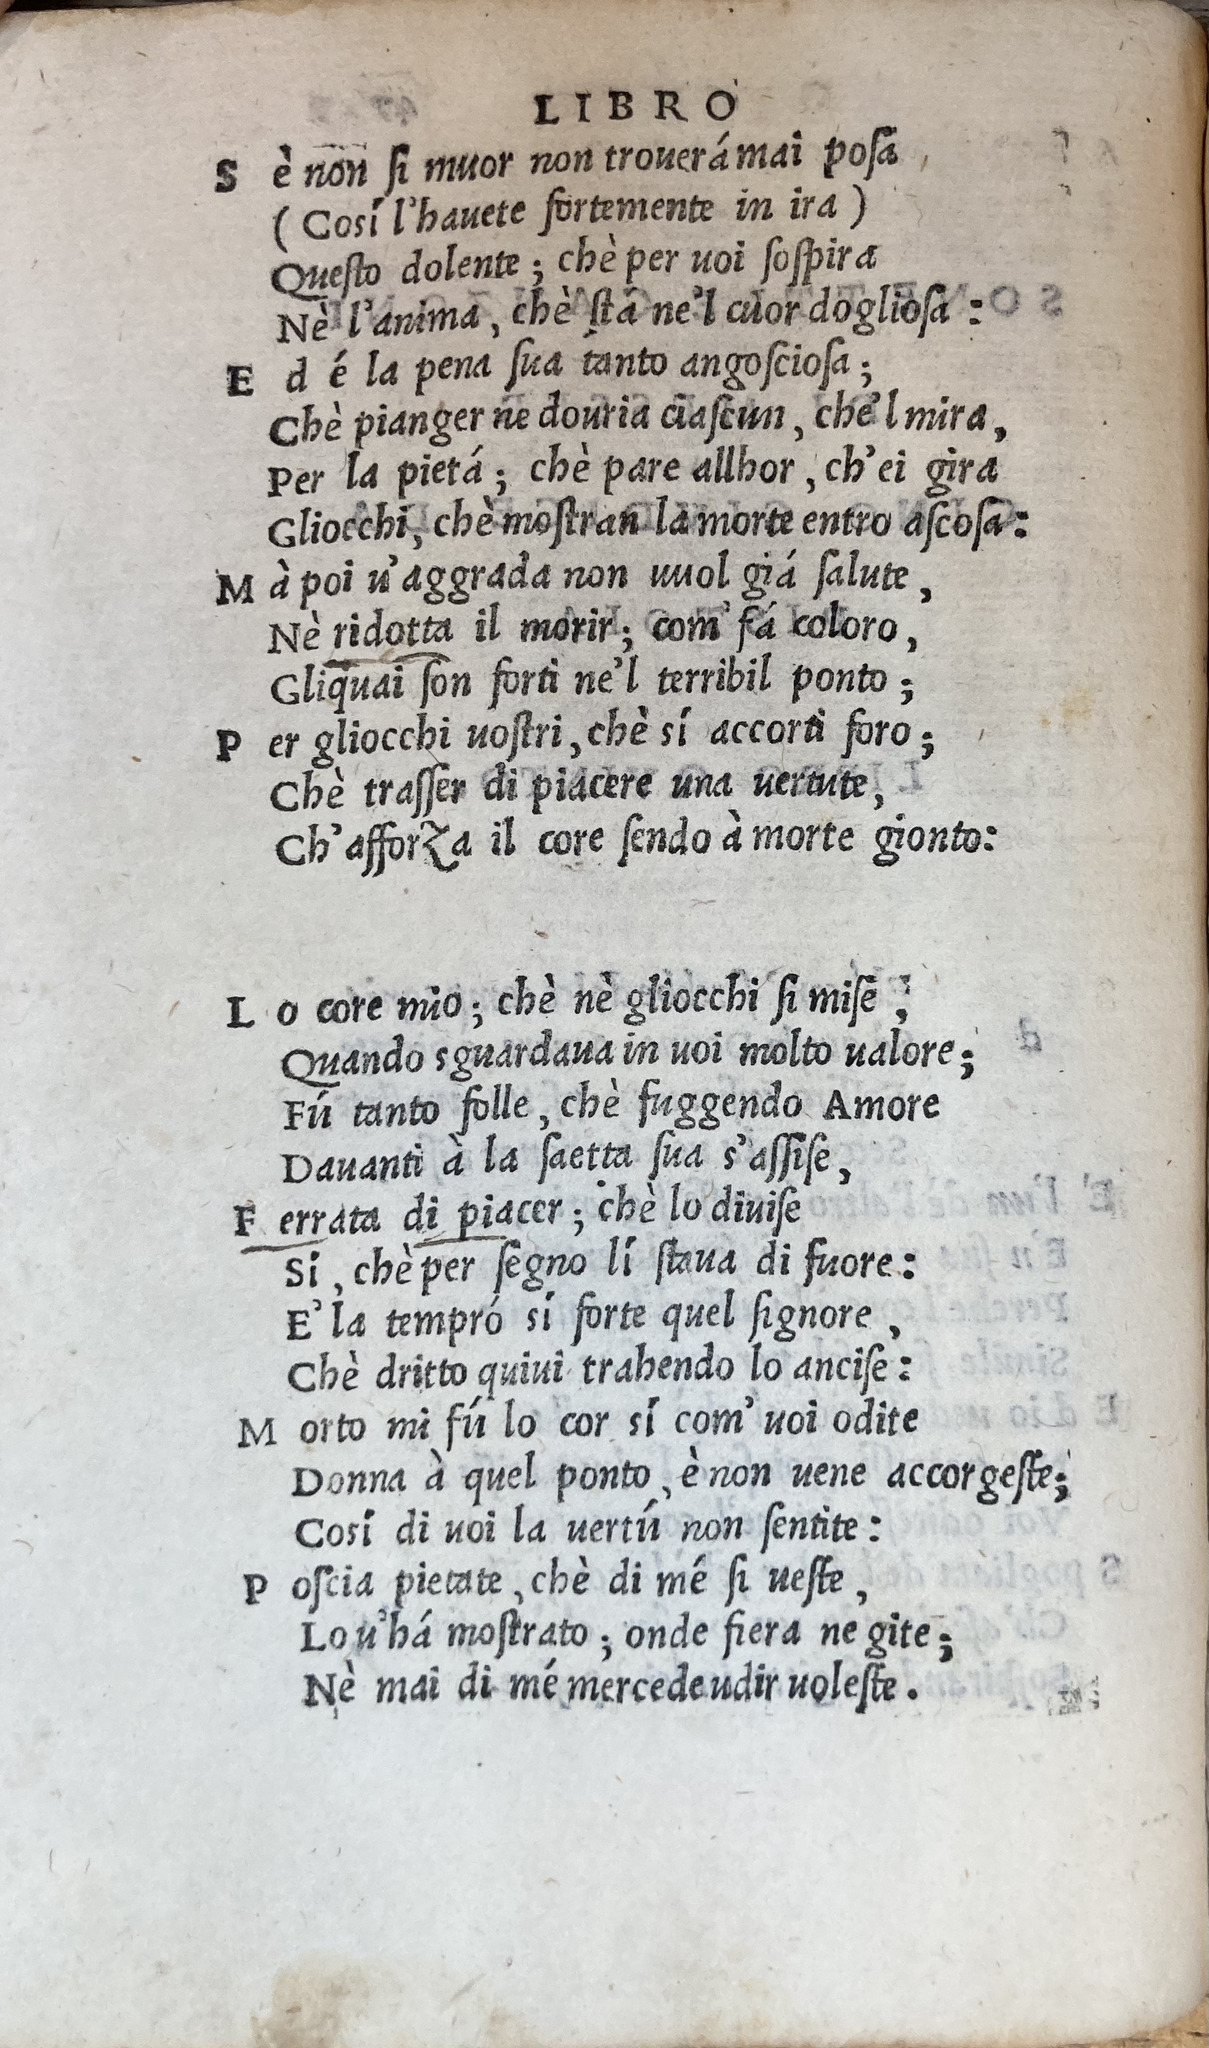 LIBRO
S è non ſi muor non trouerá mai poſa
(Cosí l'hauete fortemente in ira)
Queſto dolente; chè per uoi ſoſpira
Nè l'anima, chè ſtá ne'l cuor doglioſa:
E d é la pena ſua tanto angoſcioſa;
Chè pianger ne douria ciaſcun, che'l mira,
Per la pietá; chè pare allhor, ch'ei gira
Gliocchi, chè moſtran la morte entro aſcoſa:
M à poi u'aggrada non uuol giá ſalute,
Nè ridotta il morir; com' fá coloro,
Gliquai ſon forti ne'l terribil ponto;
P er gliocchi uoſtri, chè sí accorti foro;
Chè traſſer di piacere una uertute,
Ch'afforza il core ſendo à morte gionto:
L o core mio; chè nè gliocchi ſi miſe,
Quando sguardaua in uoi molto ualore;
Fú tanto folle, chè fuggendo Amore
Dauanti à la ſaetta ſua s'aſſiſe,
F errata di piacer; chè lo diuiſe
Si, chè per ſegno lí ſtaua di fuore:
E' la tempró sí forte quel ſignore,
Chè dritto quiui trahendo lo anciſe:
M orto mi fú lo cor sí com' uoi odite
Donna à quel ponto, è non uene accorgeſte;
Cosí di uoi la uertú non ſentite:
P oſcia pietate, chè di mé ſi ueſte,
Lo u'há moſtrato; onde fiera ne gite;
Nè mai di mé mercede udir uoleſte.